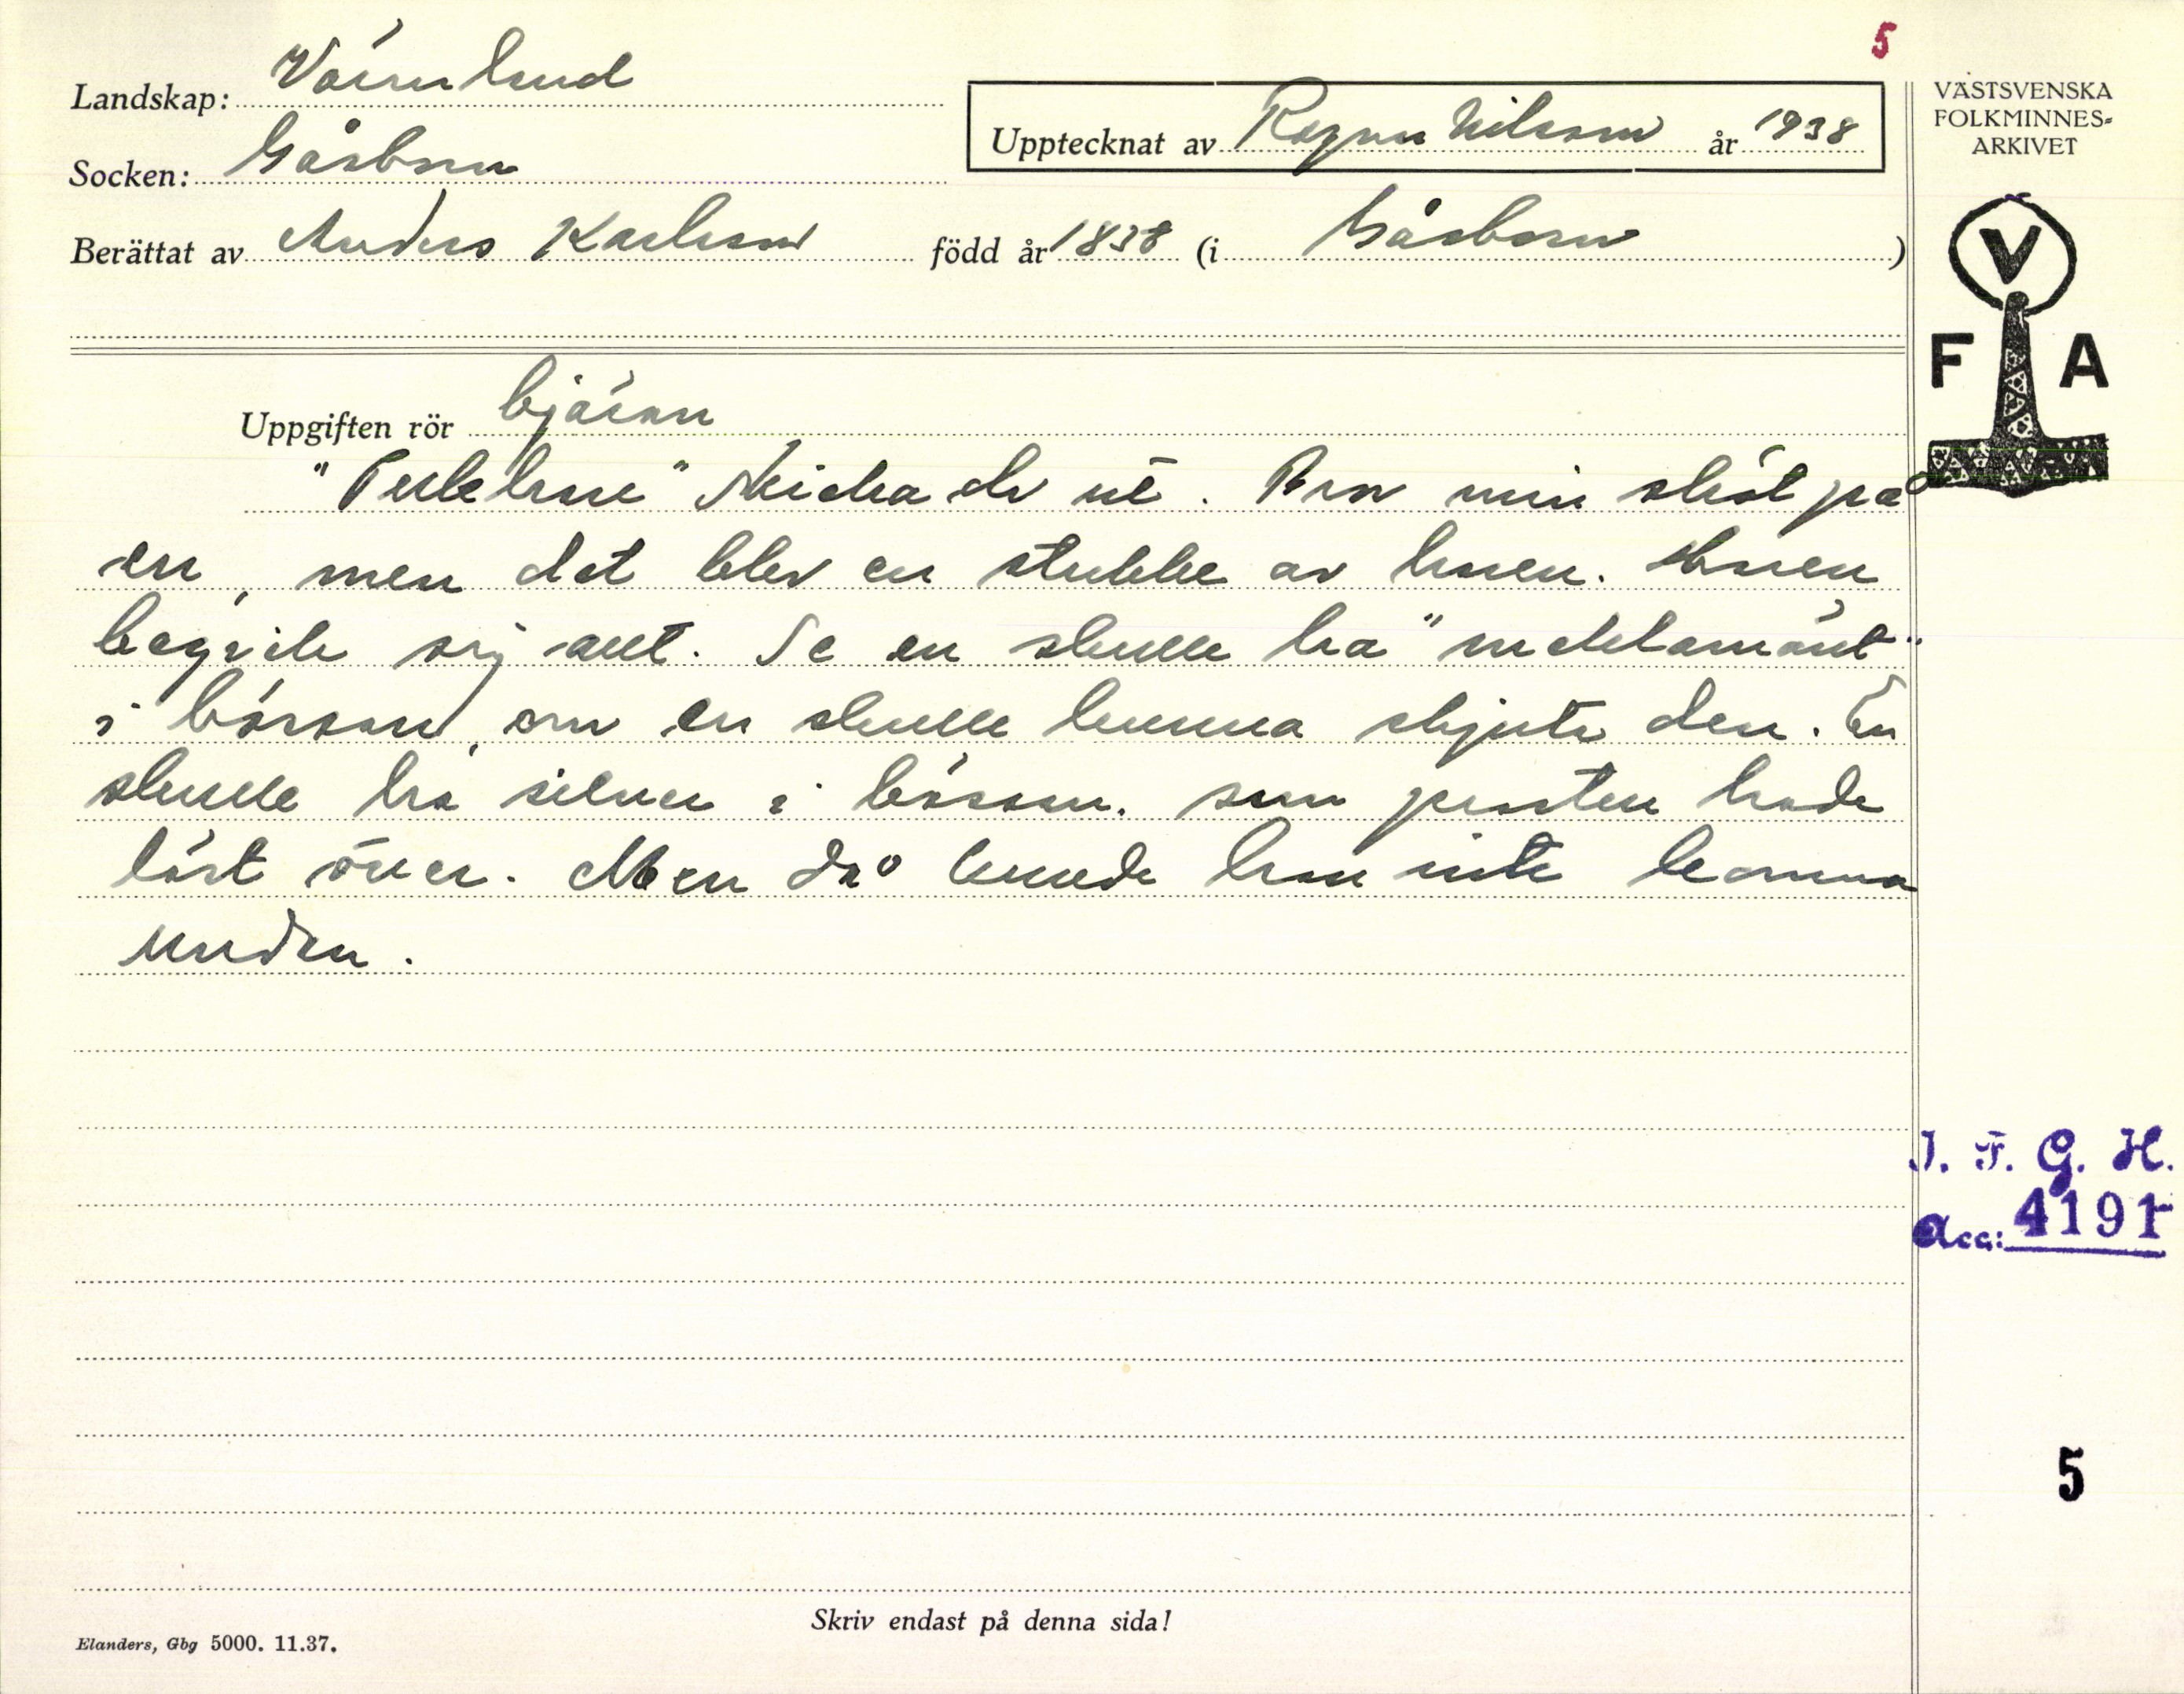 5
Landskap: Värmland
Socken: Gåsborn
Upptecknat av Ragnar Nilsson år 1938
Berättat av Anders Karlsson född år 1838 (i Gåsborn)
VÄSTSVENSKA
FOLKMINNES-
ARKIVET
V
F A
Uppgiften rör bjäran
" hare" skicka de ut. Bror min sköt på
en, men det blev en stubbe av haren. Haren
begride sig allt. Se en skulle ha "
i bössan, om en skulle kunna skjuta den. En
skulle ha silver i bössan. som prästen hade
läst över. Men då kunde han inte komma
undan.
I. F. G. H.
Acc: 4191
5
Skriv endast på denna sida!
Elanders, Gbg 5000. 11.37.